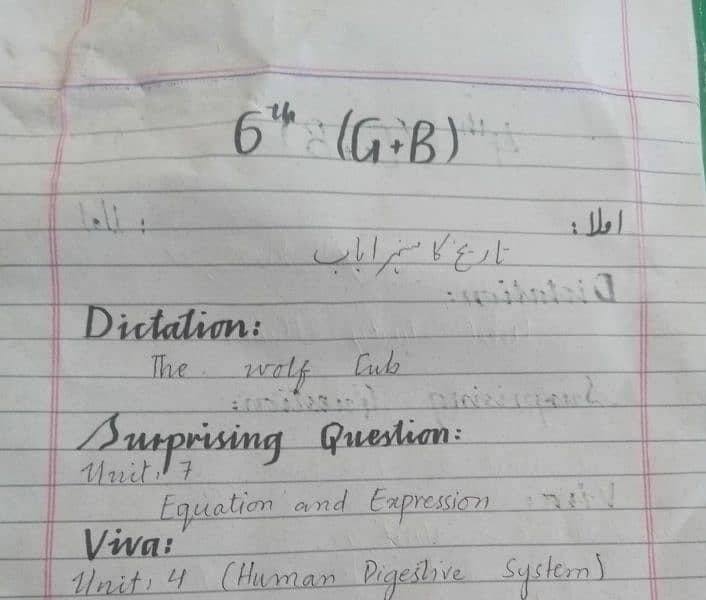 6th (G+B)
املا:
تاریخ کا سنہرا باب
Dictation:
The wolf Cub
Surprising Question:
Unit: 7
Equation and Expression
Viva:
Unit: 4 (Human Digestive System)